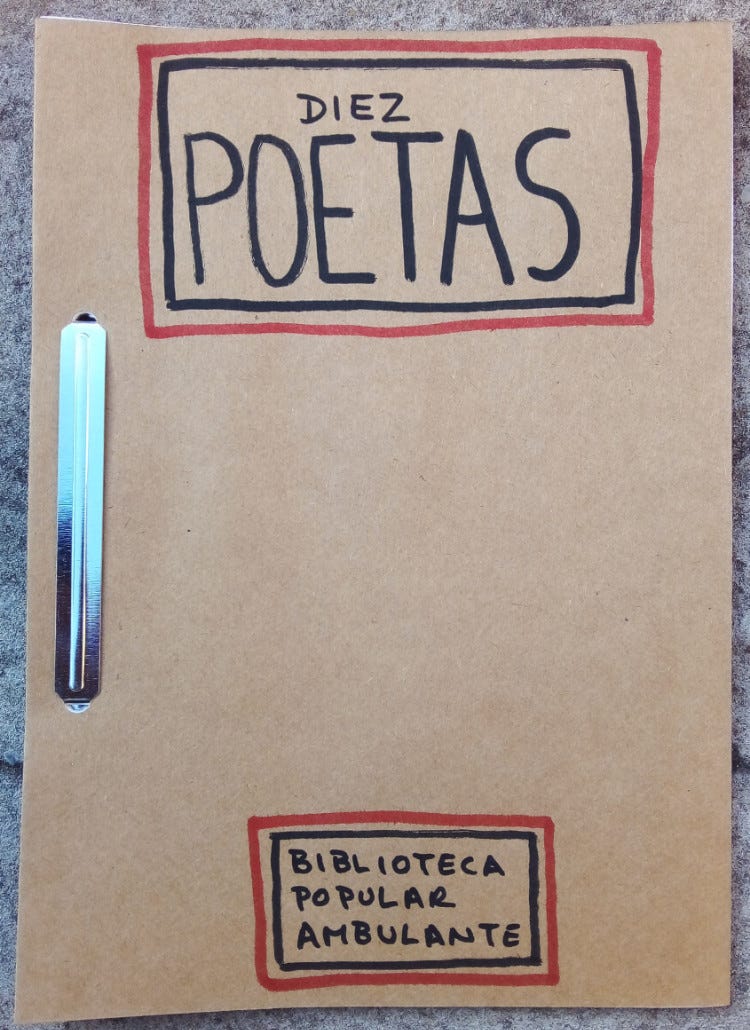 DIEZ
POETAS
BIBLIOTECA
POPULAR
AMBULANTE